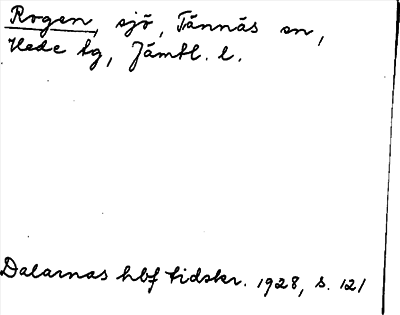 Rogen, sjö, Tännäs sn,
Hede tg, Jämtl. l.
Dalarnas hbf tidskr. 1928, s. 121